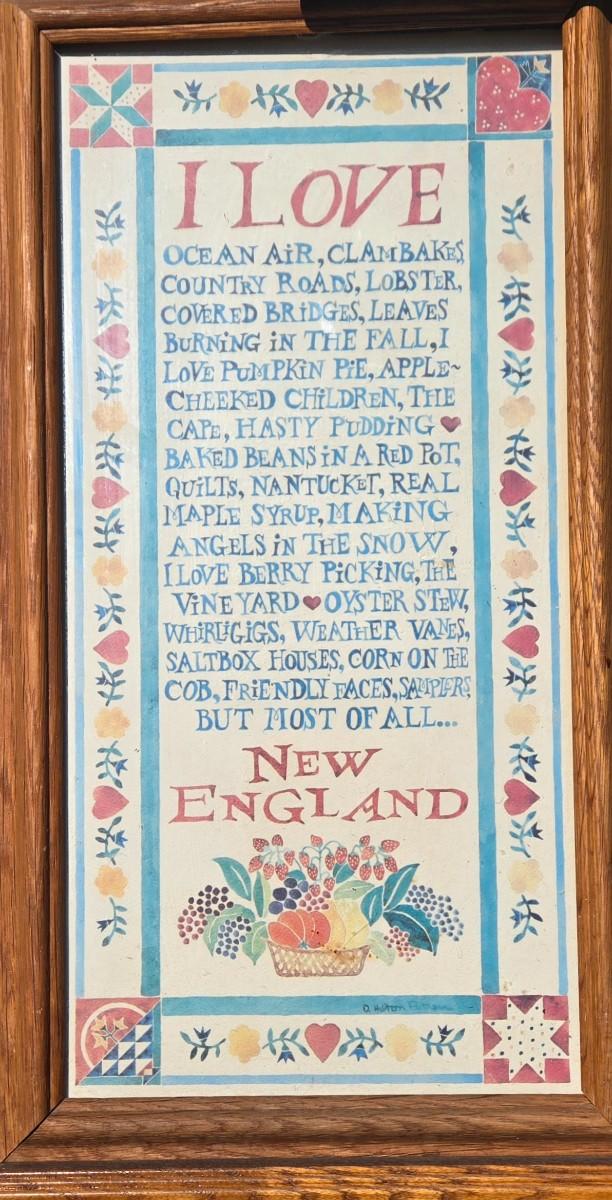 I LOVE
OCEAN AiR, CLAMBAKES,
COUNTRY ROADS, LOBSTER,
COVERED BRiDGES, LEAVES
BURNiNG iN THE FALL, I
LOVE PUMPKiN PiE, APPLE~
CHEEKED CHiLDREN, THE
CAPE, HASTY PUDDiNG ♥
BAKED BEANS iN A RED POT,
QUiLTS, NANTUCKET, REAL
MAPLE SYRUP, MAKiNG
ANGELS iN THE SNOW,
I LOVE BERRY PiCKiNG, THE
ViNEYARD ♥ OYSTER STEW,
WHiRLiGiGS, WEATHER VANES,
SALTBOX HOUSES, CORN ON THE
COB, FRiENDLY FACES, SAMPLERS
BUT MOST OF ALL...
NEW
ENGLAND